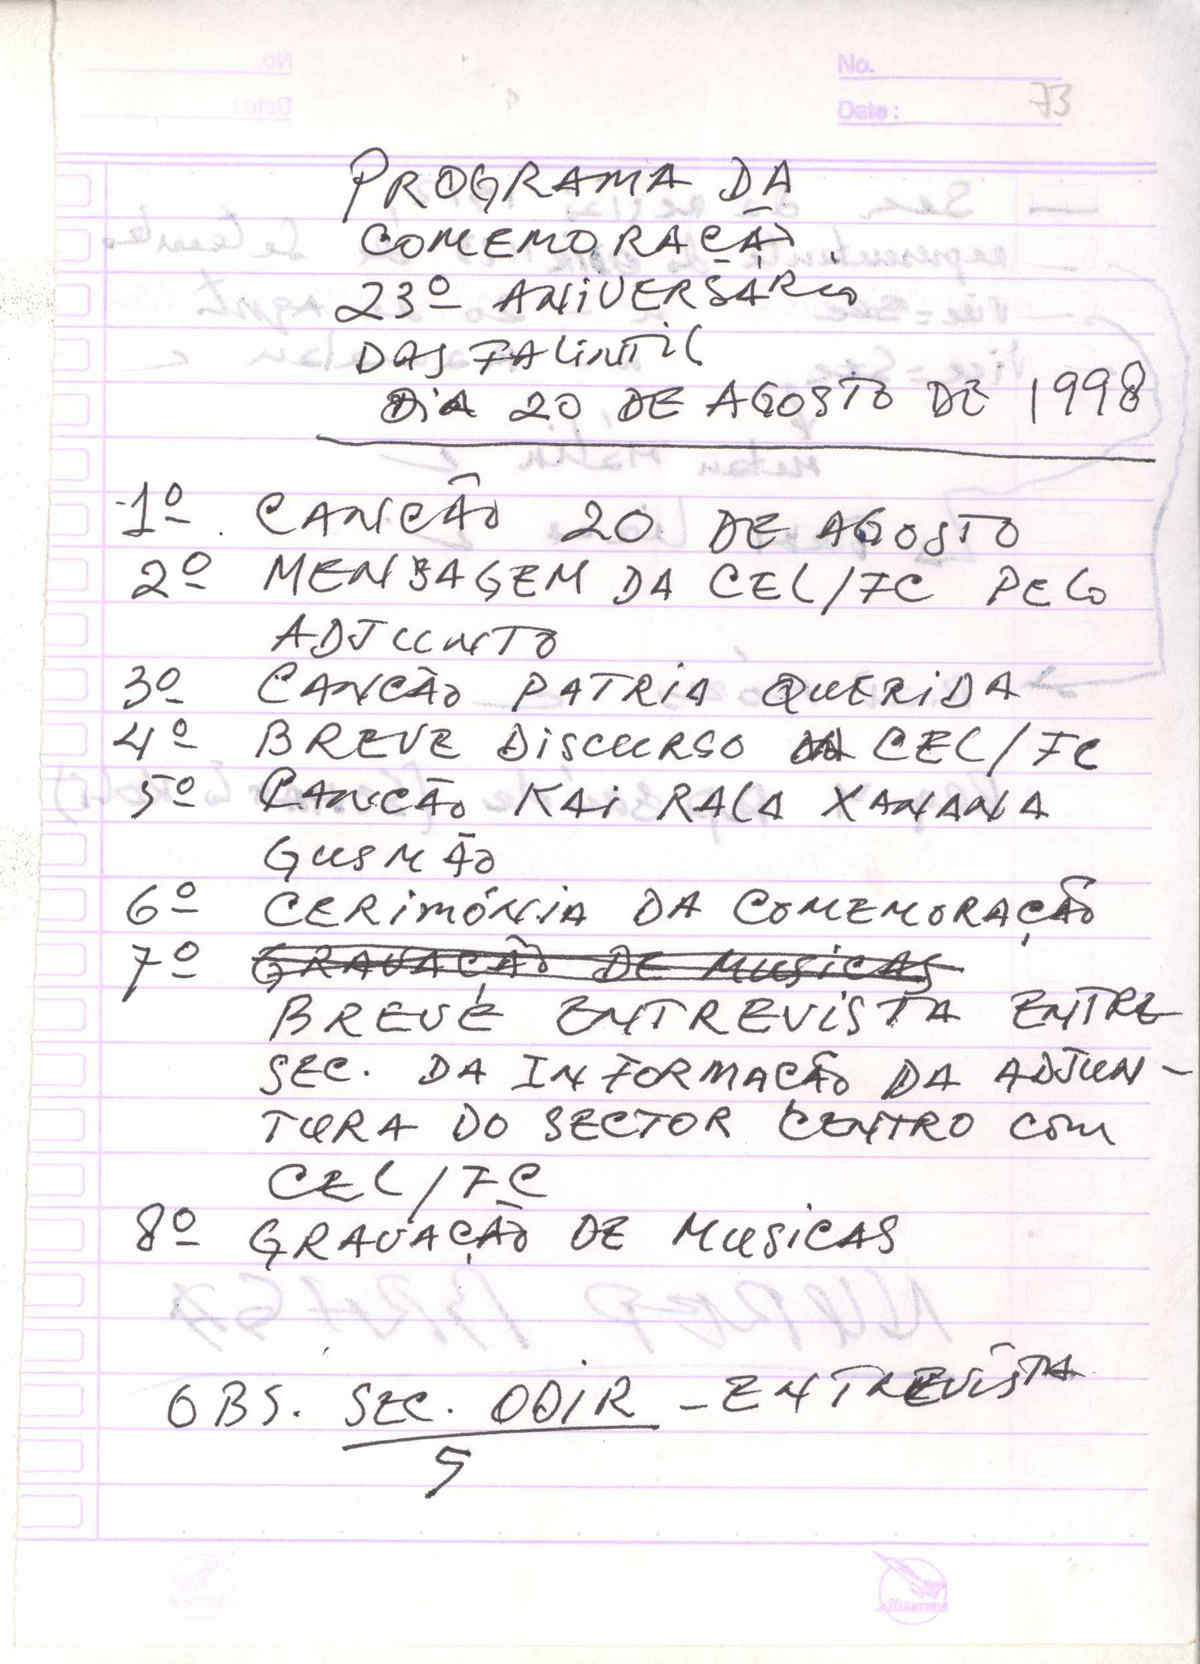 No.
Date:
73
PROGRAMA DA
COMEMORAÇÃO
23º ANIVERSÁRIO
DAS FALINTIL
DIA 20 DE AGOSTO DE 1998
1º CANCÃO 20 DE AGOSTO
2º MENSAGEM DA CEL/FC PELO
ADJUNTO
3º CANCÃO PATRIA QUERIDA
4º BREVE DISCURSO CEL/FC
5º CANCÃO KAI RALA XANANA
GUSMÃO
6º CERIMÓNIA DA COMEMORAÇÃO
7º GRAVAÇÃO DE MUSICAS
BREVE ENTREVISTA ENTRE
SEC. DA INFORMAÇÃO DA ADJUN-
TURA DO SECTOR CENTRO COM
CEL/FC
8º GRAVAÇÃO DE MUSICAS
OBS. SEC. ODIR - ENTREVISTA
5